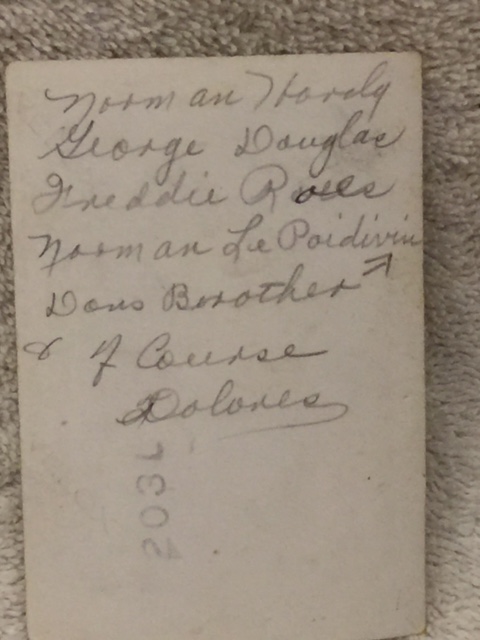 Norman Hardy
George Douglas
Freddie
Norman Le Poidivin
Dons Brother
& of Course
Dolores
203L